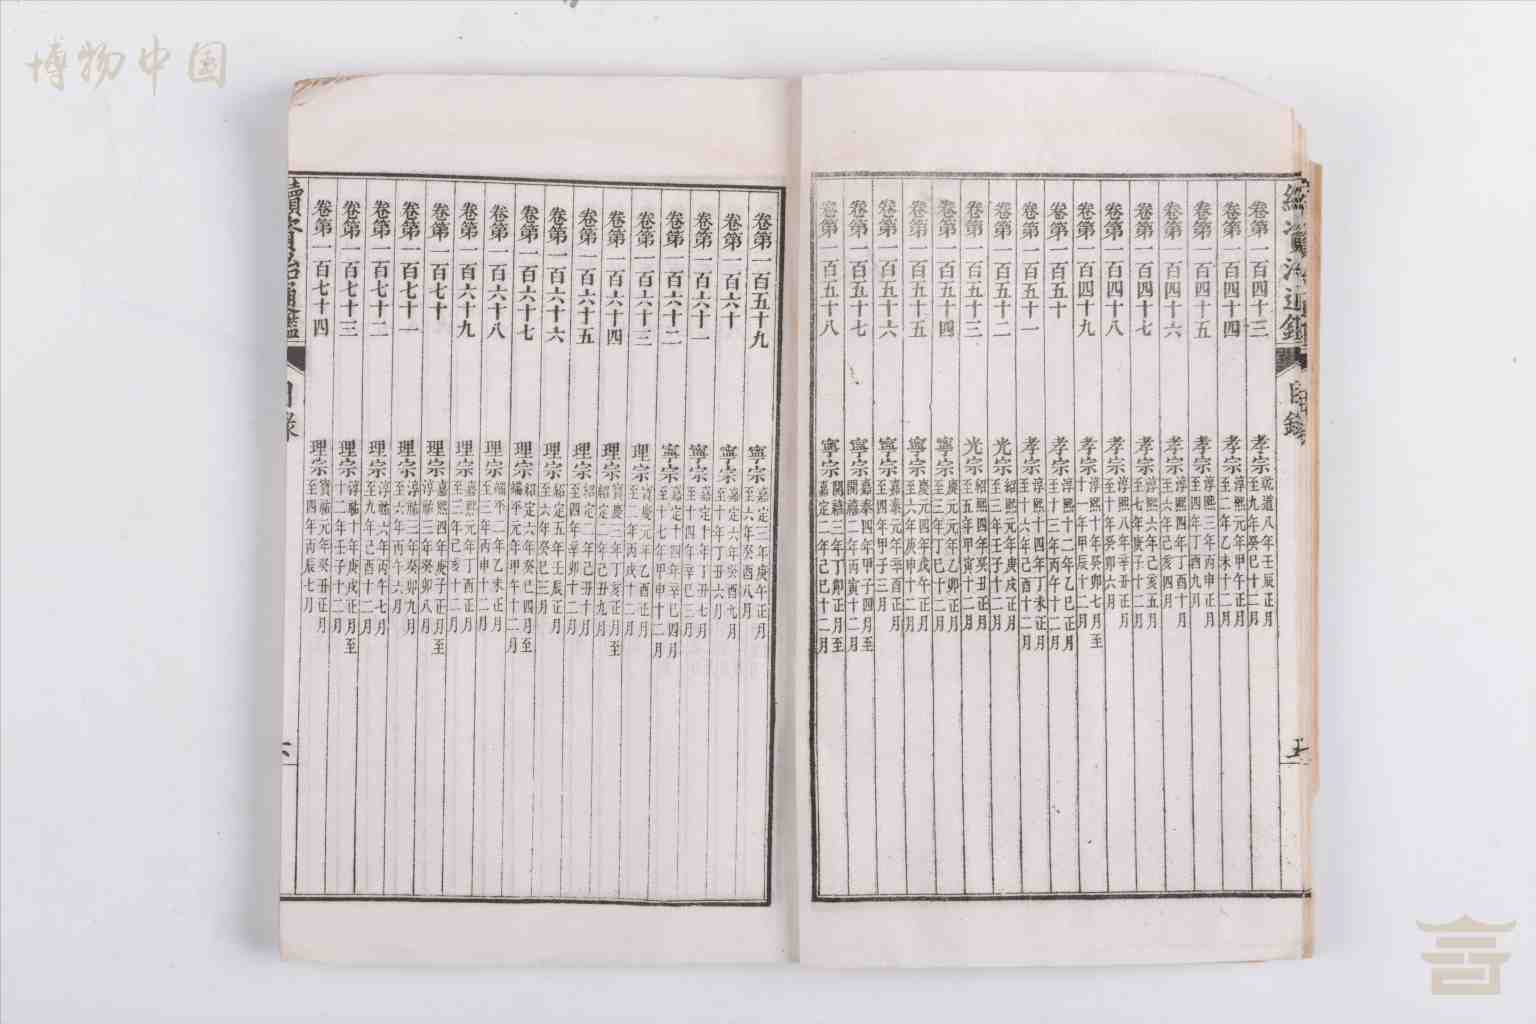 博物中国
續資治通鑑 目錄 五
卷第一百四十三 孝宗 乾道八年壬辰正月至九年癸巳十二月
卷第一百四十四 孝宗 淳熙元年甲午正月至二年乙未十二月
卷第一百四十五 孝宗 淳熙三年丙申正月至四年丁酉九月
卷第一百四十六 孝宗 淳熙四年丁酉十月至六年己亥四月
卷第一百四十七 孝宗 淳熙六年己亥五月至七年庚子十二月
卷第一百四十八 孝宗 淳熙八年辛丑正月至十年癸卯六月
卷第一百四十九 孝宗 淳熙十年癸卯七月至十一年甲辰十二月
卷第一百五十 孝宗 淳熙十二年乙巳正月至十三年丙午十二月
卷第一百五十一 孝宗 淳熙十四年丁未正月至十六年己酉十二月
卷第一百五十二 光宗 紹熙元年庚戌正月至三年壬子十二月
卷第一百五十三 光宗 紹熙四年癸丑正月至五年甲寅十二月
卷第一百五十四 寧宗 慶元元年乙卯正月至三年丁巳十二月
卷第一百五十五 寧宗 慶元四年戊午正月至六年庚申十二月
卷第一百五十六 寧宗 嘉泰元年辛酉正月至四年甲子三月
卷第一百五十七 寧宗 嘉泰四年甲子四月至開禧二年丙寅十二月
卷第一百五十八 寧宗 開禧三年丁卯正月至嘉定二年己巳十二月
卷第一百五十九 寧宗 嘉定三年庚午正月至六年癸酉八月
卷第一百六十 寧宗 嘉定六年癸酉九月至十年丁丑六月
卷第一百六十一 寧宗 嘉定十年丁丑七月至十四年辛巳三月
卷第一百六十二 寧宗 嘉定十四年辛巳四月至十七年甲申十二月
卷第一百六十三 理宗 寶慶元年乙酉正月至二年丙戌十二月
卷第一百六十四 理宗 寶慶三年丁亥正月至紹定二年己丑九月
卷第一百六十五 理宗 紹定二年己丑十月至四年辛卯十二月
卷第一百六十六 理宗 紹定五年壬辰正月至六年癸巳三月
卷第一百六十七 理宗 紹定六年癸巳四月至端平元年甲午十二月
卷第一百六十八 理宗 端平二年乙未正月至三年丙申十二月
卷第一百六十九 理宗 嘉熙元年丁酉正月至三年己亥十二月
卷第一百七十 理宗 嘉熙四年庚子正月至淳祐三年癸卯八月
卷第一百七十一 理宗 淳祐三年癸卯九月至六年丙午六月
卷第一百七十二 理宗 淳祐六年丙午七月至九年己酉十二月
卷第一百七十三 理宗 淳祐十年庚戌正月至十二年壬子十二月
卷第一百七十四 理宗 寶祐元年癸丑正月至四年丙辰七月
續資治通鑑 目錄 六